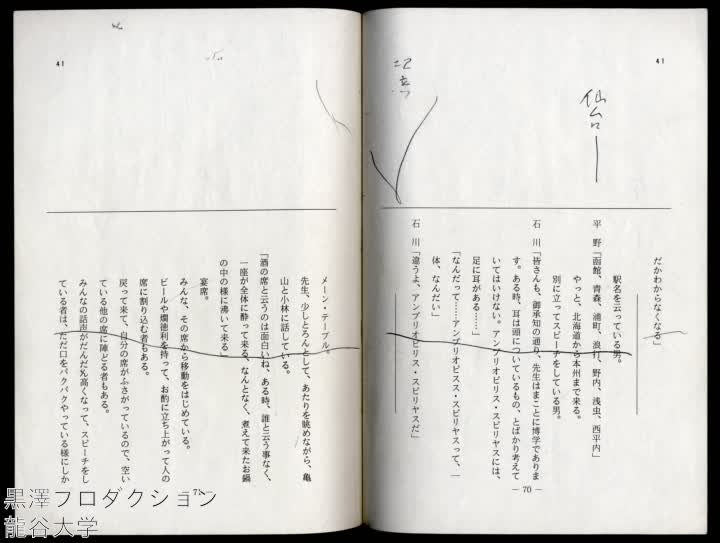 41
仙台
だかわからなくなる」
駅名を云っている男。
平　野「函館、青森、浦町、浪打、野内、浅虫、西平内」
やっと、北海道から本州まで来る。
別に立ってスピーチをしている男。
石　川「皆さんも、御承知の通り、先生はまことに博学でありま
す。ある時、耳は頭についているもの、とばかり考えて
いてはいけない。アンブリオピリス・スピリヤスには、
足に耳がある……」
「なんだって……アンブリオピスス・スピリヤスって、一
体、なんだい」
石　川「違うよ、アンブリオピリス・スピリヤスだ」
— 70 —
41
メーン・テーブル。
先生、少しとろんとして、あたりを眺めながら、亀
山と小林に話している。
「酒の席と云うのは面白いね、ある時、誰と云う事なく、
一座が全体に酔って来る、なんとなく、煮えて来たお鍋
の中の様に沸いて来る」
宴席。
みんな、その席から移動をはじめている。
ビールや燗徳利を持って、お酌に立ち上がって人の
席に割り込む者もある。
戻って来て、自分の席がふさがっているので、空い
ている他の席に陣どる者もある。
みんなの話声がだんだん高くなって、スピーチをし
ている者は、ただ口をパクパクやっている様にしか
71
黒澤プロダクション
龍谷大学